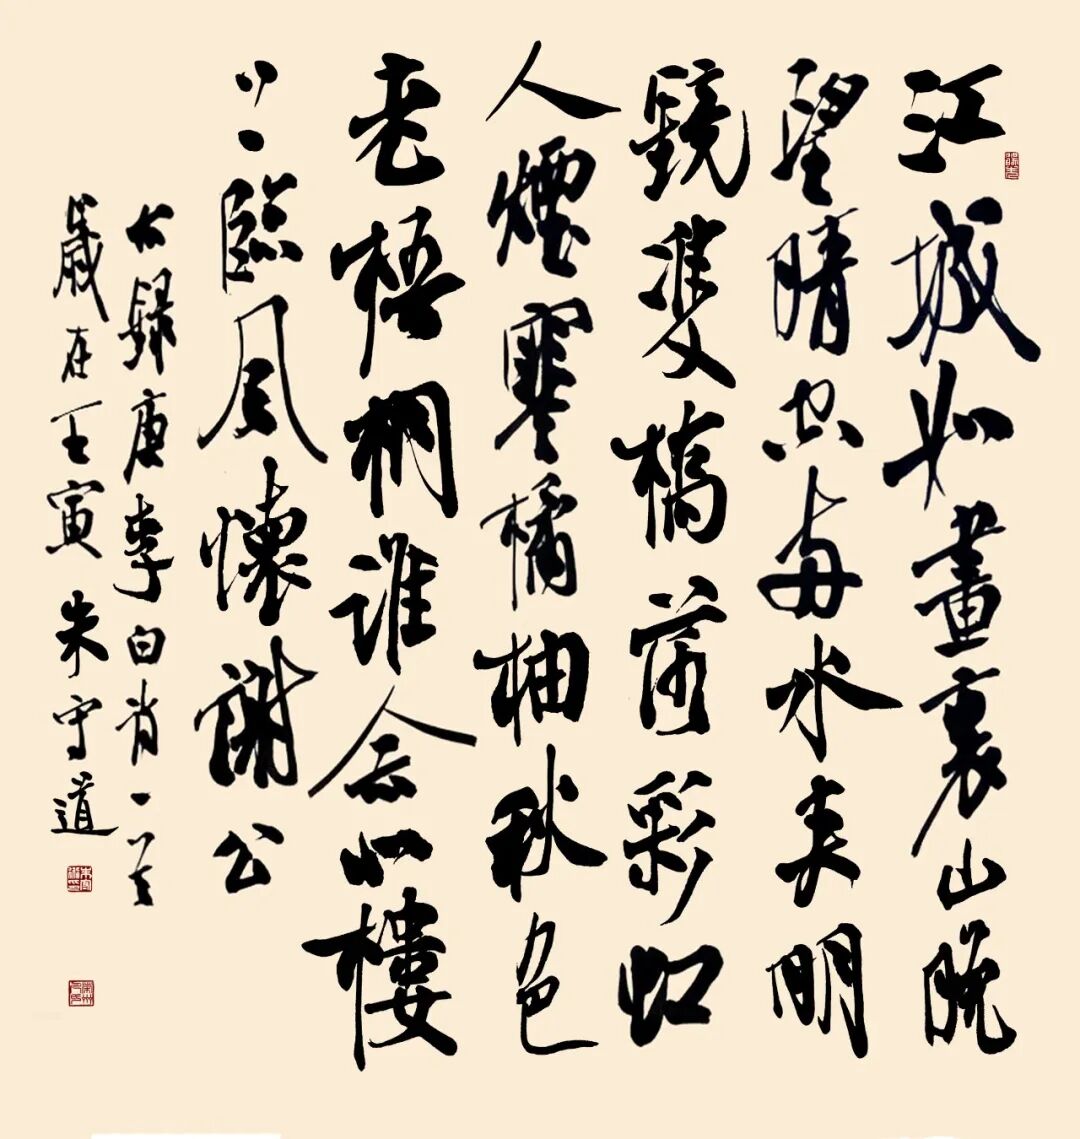 江城如畫裏山晚
望晴空兩水夾明
鏡雙橋落彩虹
人煙寒橘柚秋色
老梧桐誰念北樓
上臨風懷謝公
右錄唐李白詩一首
歲在壬寅朱守道